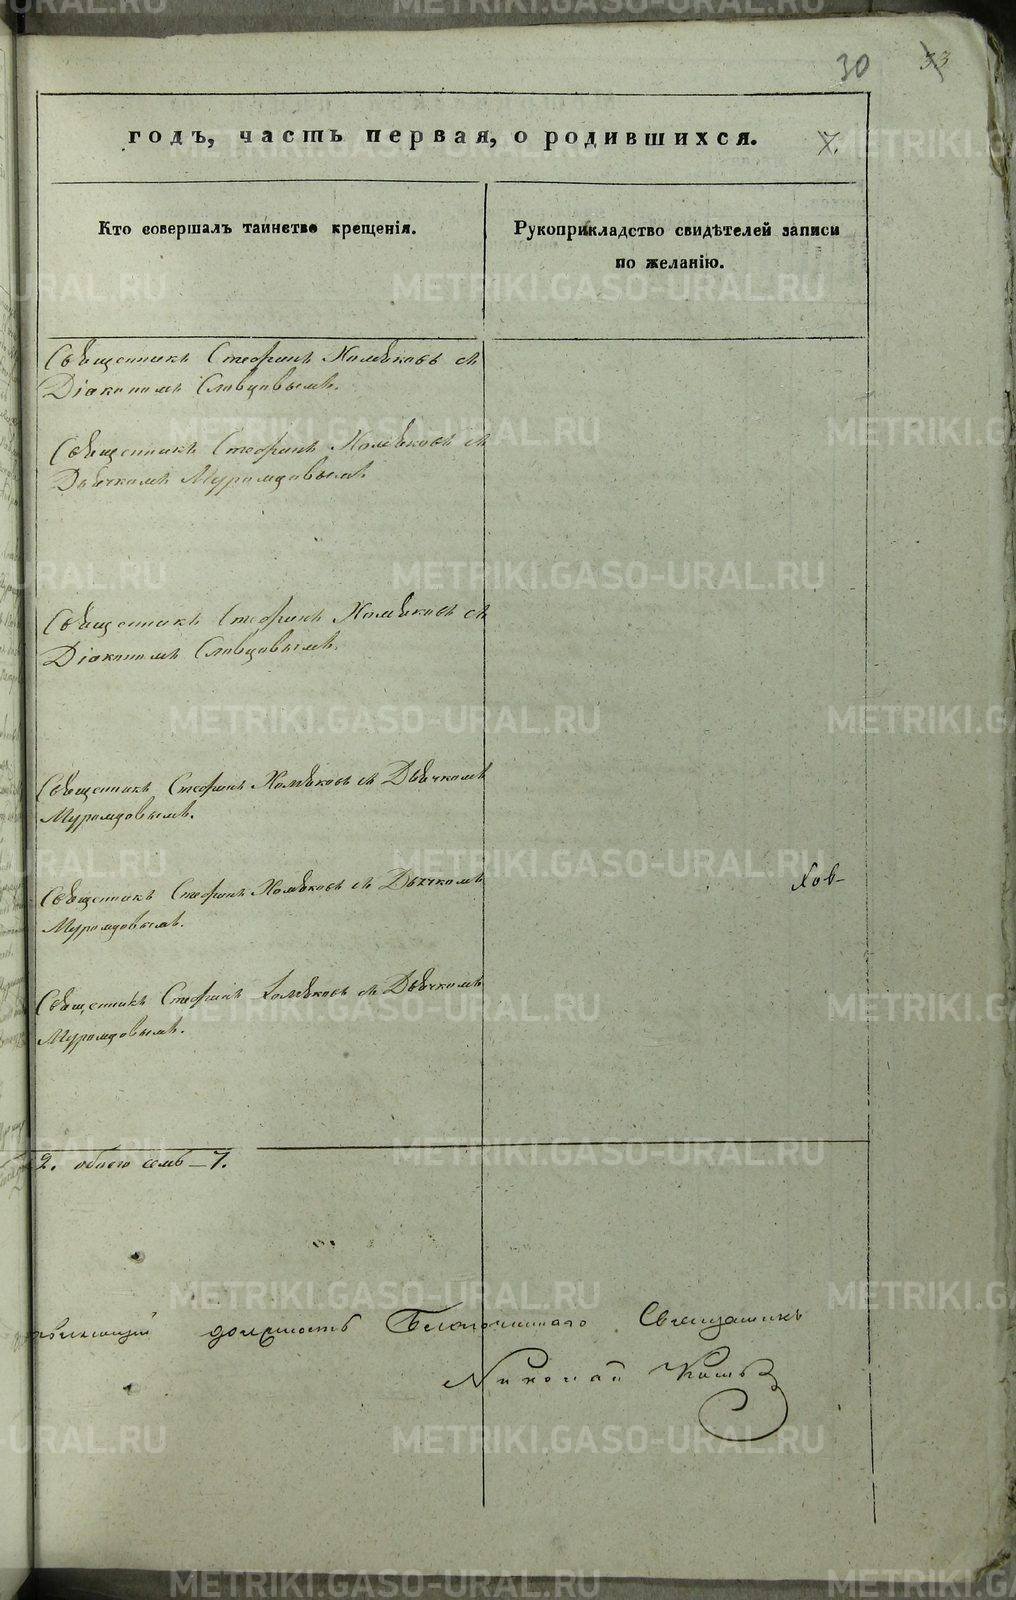 30 33
годъ, часть первая, о родившихся. 7.
Кто совершалъ таинство крещенія.
Рукоприкладство свидѣтелей записи
по желанію.
Священникъ Стефанъ Хомяковъ съ
Діакономъ Словцовымъ.
Священникъ Стефанъ Хомяковъ съ
Дьячкомъ Муромцовымъ
Священникъ Стефанъ Хомяковъ съ
Діакономъ Словцовымъ.
Священникъ Стефанъ Хомяковъ съ Дьячкомъ
Муромцовымъ.
Священникъ Стефанъ Хомяковъ съ Дьячкомъ
Муромцовымъ.
Священникъ Стефанъ Хомяковъ съ Дьячкомъ
Муромцовымъ.
2. обоего 7.
должность Благочиннаго Священникъ
Николай
METRIKI.GASO-URAL.RU